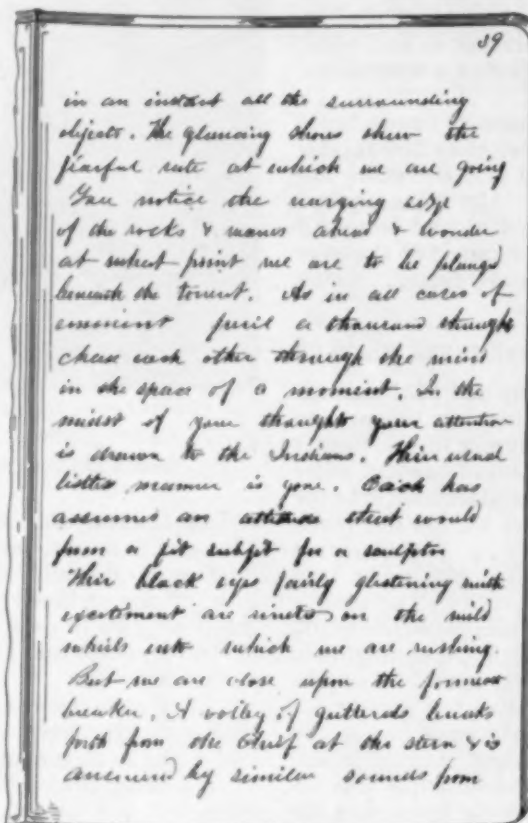 39
in an instant all the surrounding
objects. The glancing shores shew the
fearful rate at which we are going
You notice the surging edge
of the rocks & waves ahead & wonder
at what point we are to be plunged
beneath the torrent. As in all cases of
imminent peril a thousand thoughts
chase each other through the mind
in the space of a moment. In the
midst of your thoughts your attention
is drawn to the Indians. Their usual
listless manner is gone. Each has
assumed an attitude that would
form a fit subject for a sculptor
Their black eyes fairly glistening with
excitement are riveted on the wild
whirls into which we are rushing.
But we are close upon the foremost
breaker. A volley of gutterals breaks
forth from the Chief at the stern & is
answered by similar sounds from